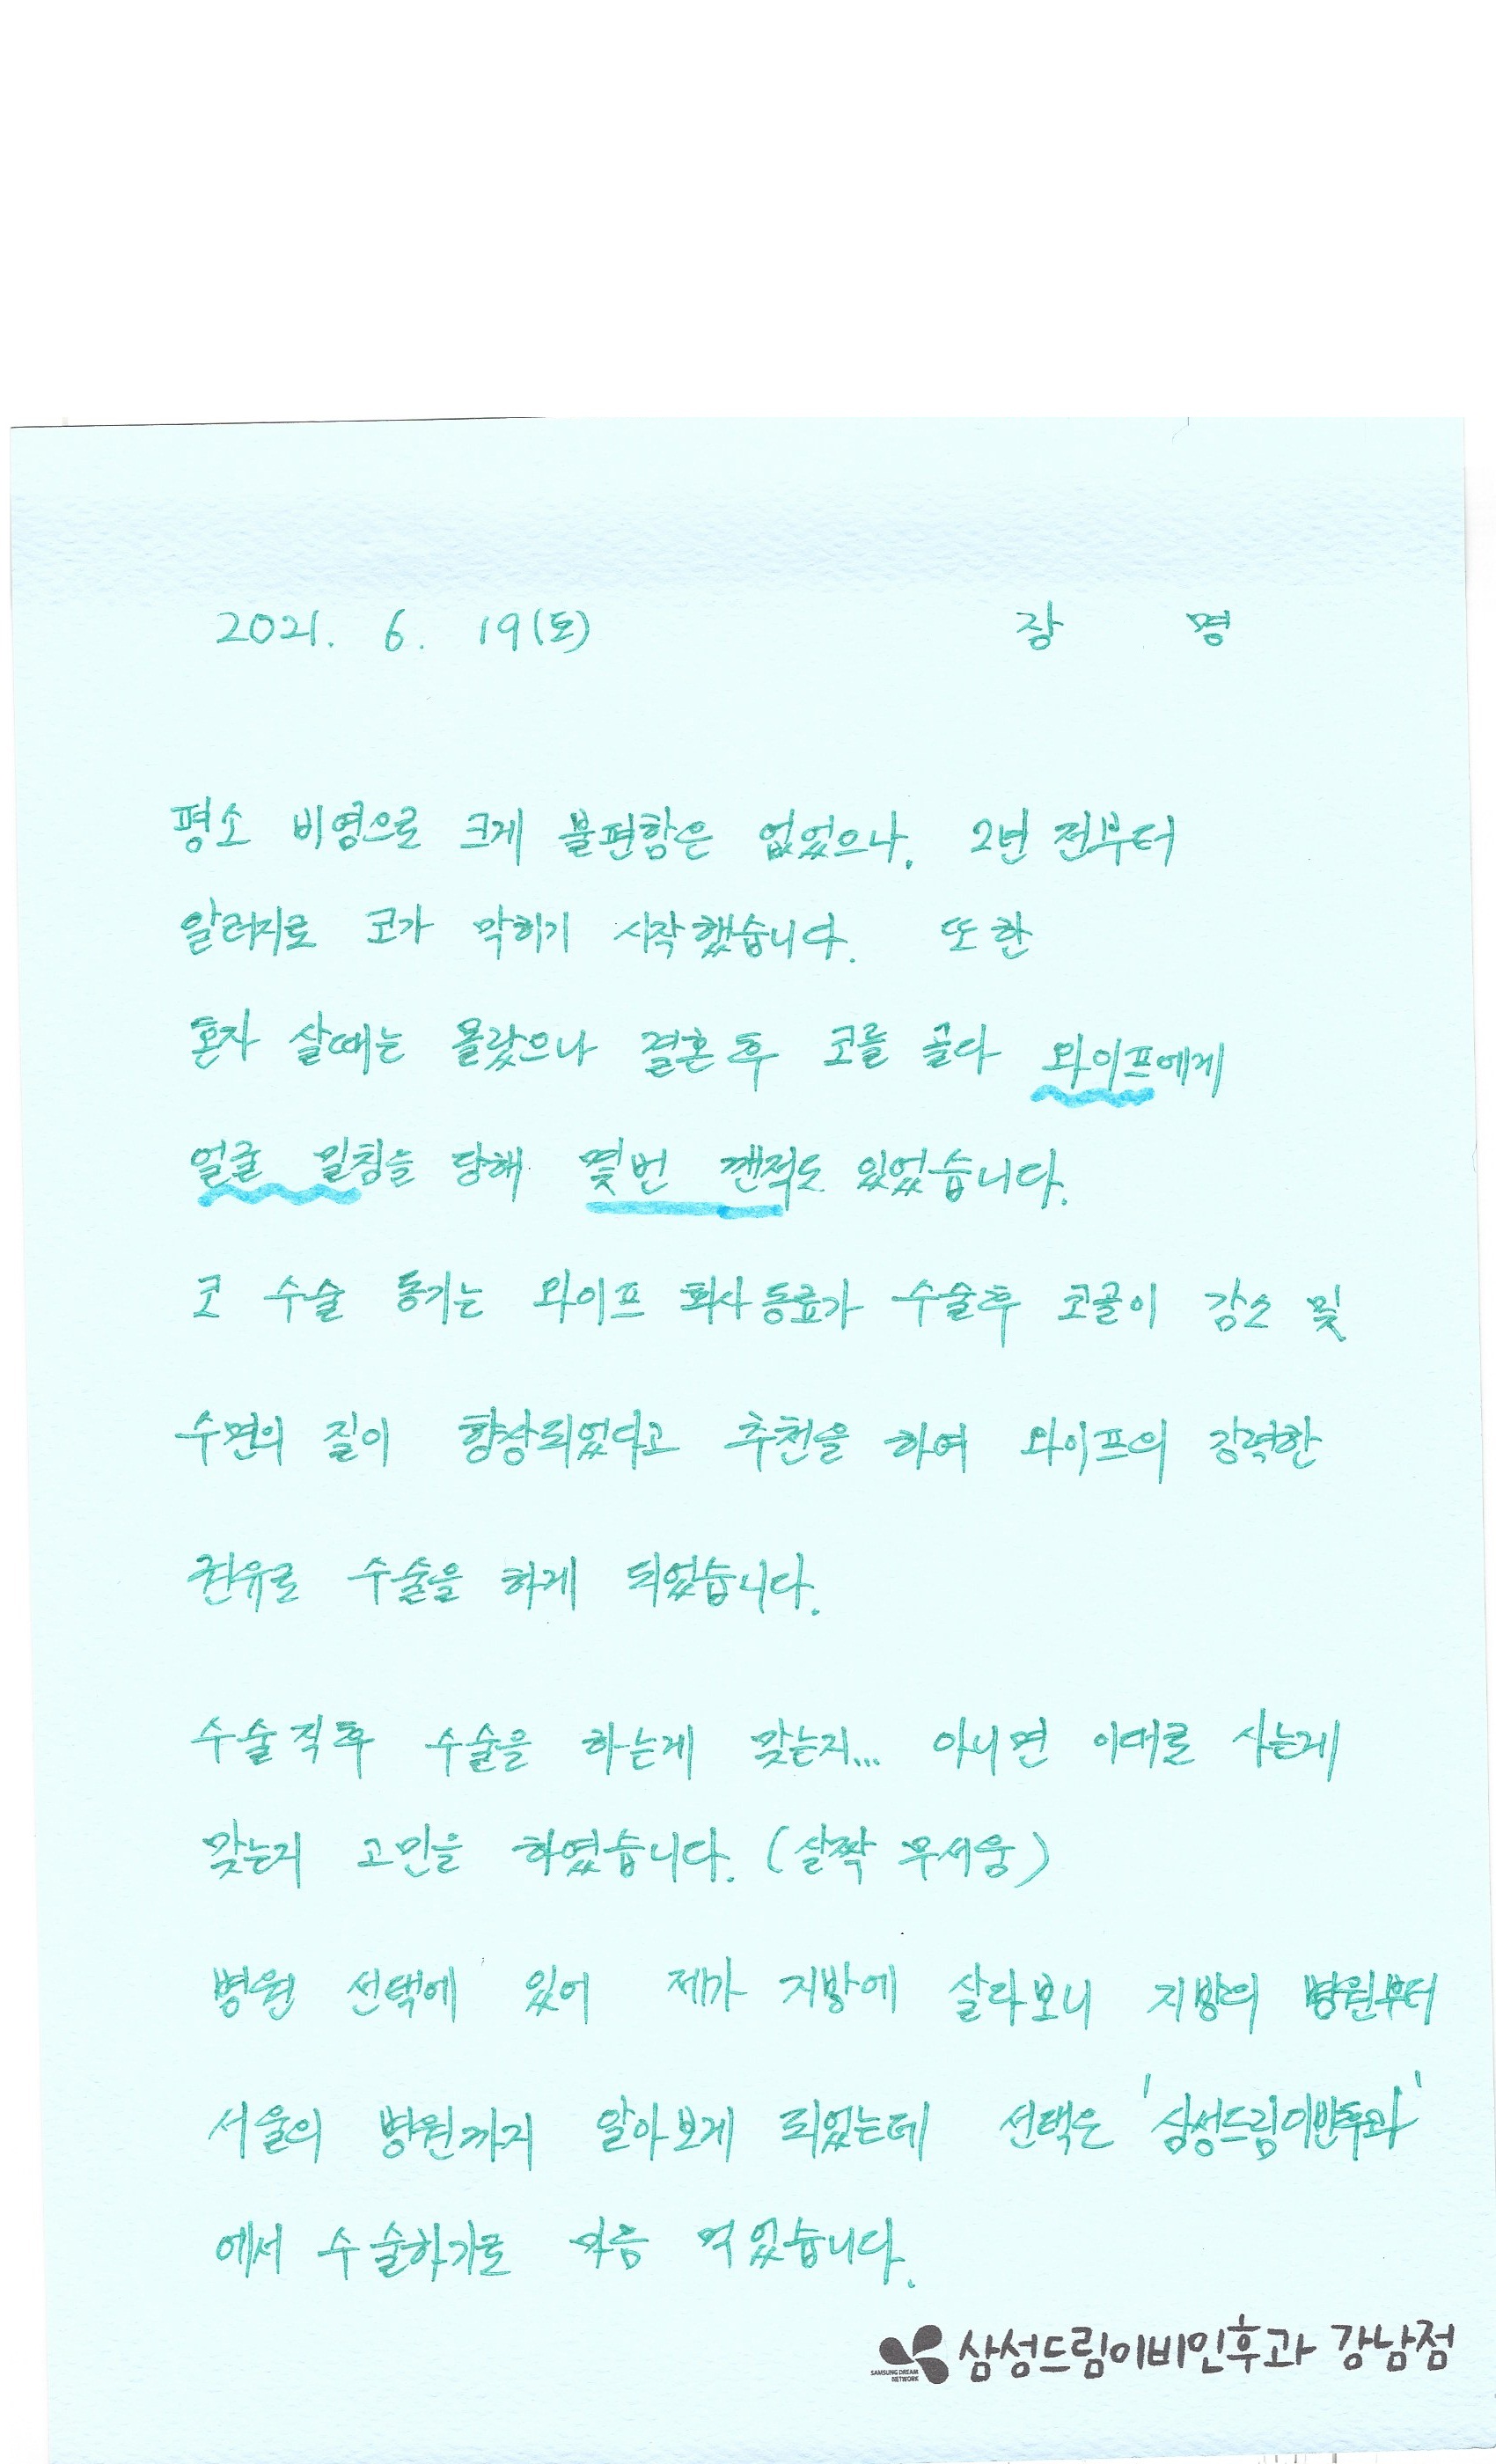 2021. 6. 19(토) 장 명
평소 비염으로 크게 불편함은 없었으나. 2년 전부터
알러지로 코가 막히기 시작했습니다. 또한
혼자 살때는 몰랐으나 결혼 후 코를 골다 와이프에게
얼굴 밀침을 당해 몇번 깬적도 있었습니다.
코 수술 동기는 와이프 회사동료가 수술후 코골이 감소 및
수면의 질이 향상되었다고 추천을 하여 와이프의 강력한
권유로 수술을 하게 되었습니다.
수술직후 수술을 하는게 맞는지... 아니면 이대로 사는게
맞는지 고민을 하였습니다. (살짝 무서웅)
병원 선택에 있어 제가 지방에 살라보니 지방의 병원부터
서울의 병원까지 알아보게 되었는데 선택은 '삼성드림이빈후과'
에서 수술하기로 마음 먹었습니다.
SAMSUNG DREAM NETWORK 삼성드림이비인후과 강남점